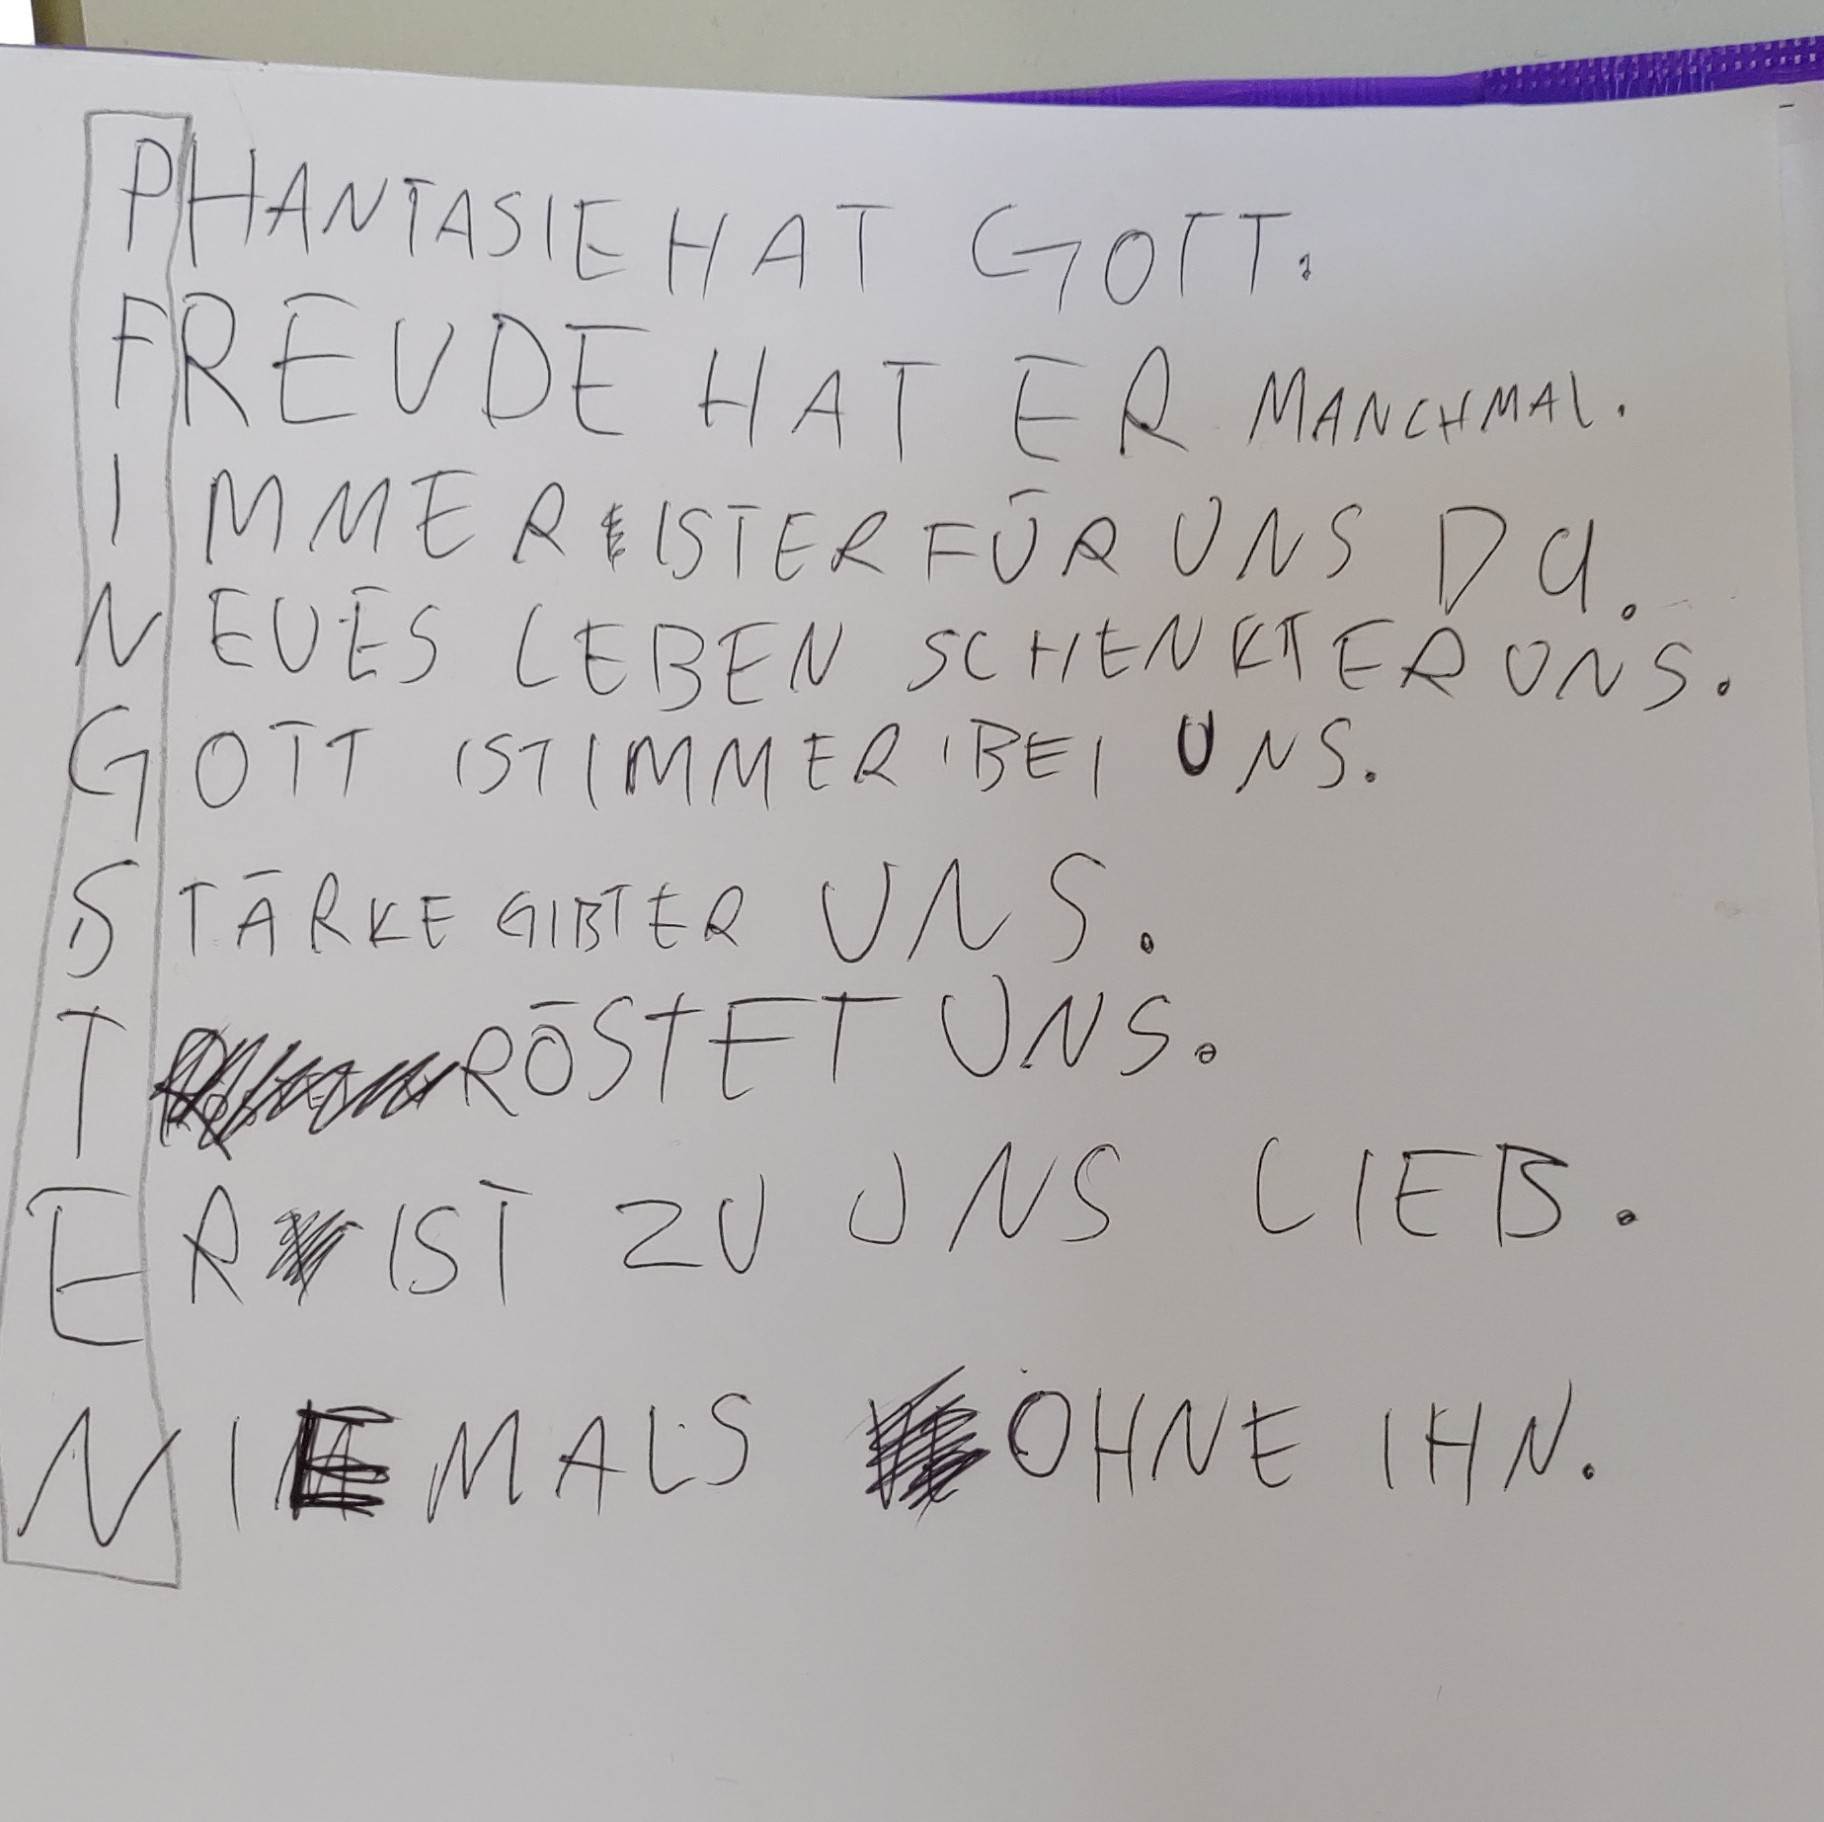 PHANTASIE HAT GOTT.
FREUDE HAT ER MANCHMAL.
IMMER IST ER FÜR UNS DA.
NEUES LEBEN SCHENKT ER UNS.
GOTT IST IMMER BEI UNS.
STÄRKE GIBT ER UNS.
TRÖSTET UNS.
ER IST ZU UNS LIEB.
NIEMALS OHNE IHN.